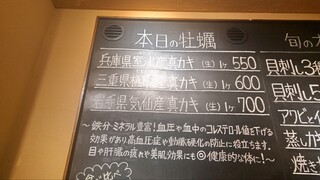 本日の牡蠣
兵庫県室津産真カキ(生)1ヶ550
三重県桃取産真カキ(生)1ヶ600
岩手県気仙産真カキ(生)1ヶ700
〜鉄分・ミネラル豊富!血圧や血中のコレステロール値を下げる
効果があり高血圧症や動脈硬化の防止に役立ちます。
目や肝臓の疲れや美肌効果にも◎健康的な体に!〜
旬の
貝刺し3種
貝刺し5
アワビ
蒸しが
焼き